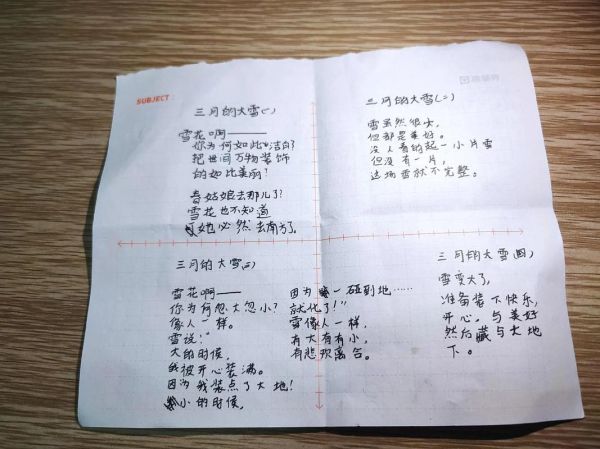 SUBJECT:
三月的大雪(一)
雪花啊——
你为何如此"洁白?
把世间万物装饰
的如比美丽?
春姑娘去那儿了?
雪花也不知道
她必然去南方了。
三月的大雪(二)
雪虽然很大,
但都是美好。
没人看的起一小片雪
但没有一片,
这场雪就不完整。
三月的大雪(三)
雪花啊——
你为何忽大忽小?
像人一样。
雪说:"
大的时候,
我被开心装满。
因为我装点了大地!
小的时候,
因为一碰到地……
就化了!"
雪像人一样,
有大有有小,
有悲欢离合。
三月的大雪(四)
雪变大了,
准备装下快乐,
开心,与美好
然后藏与大地
下。